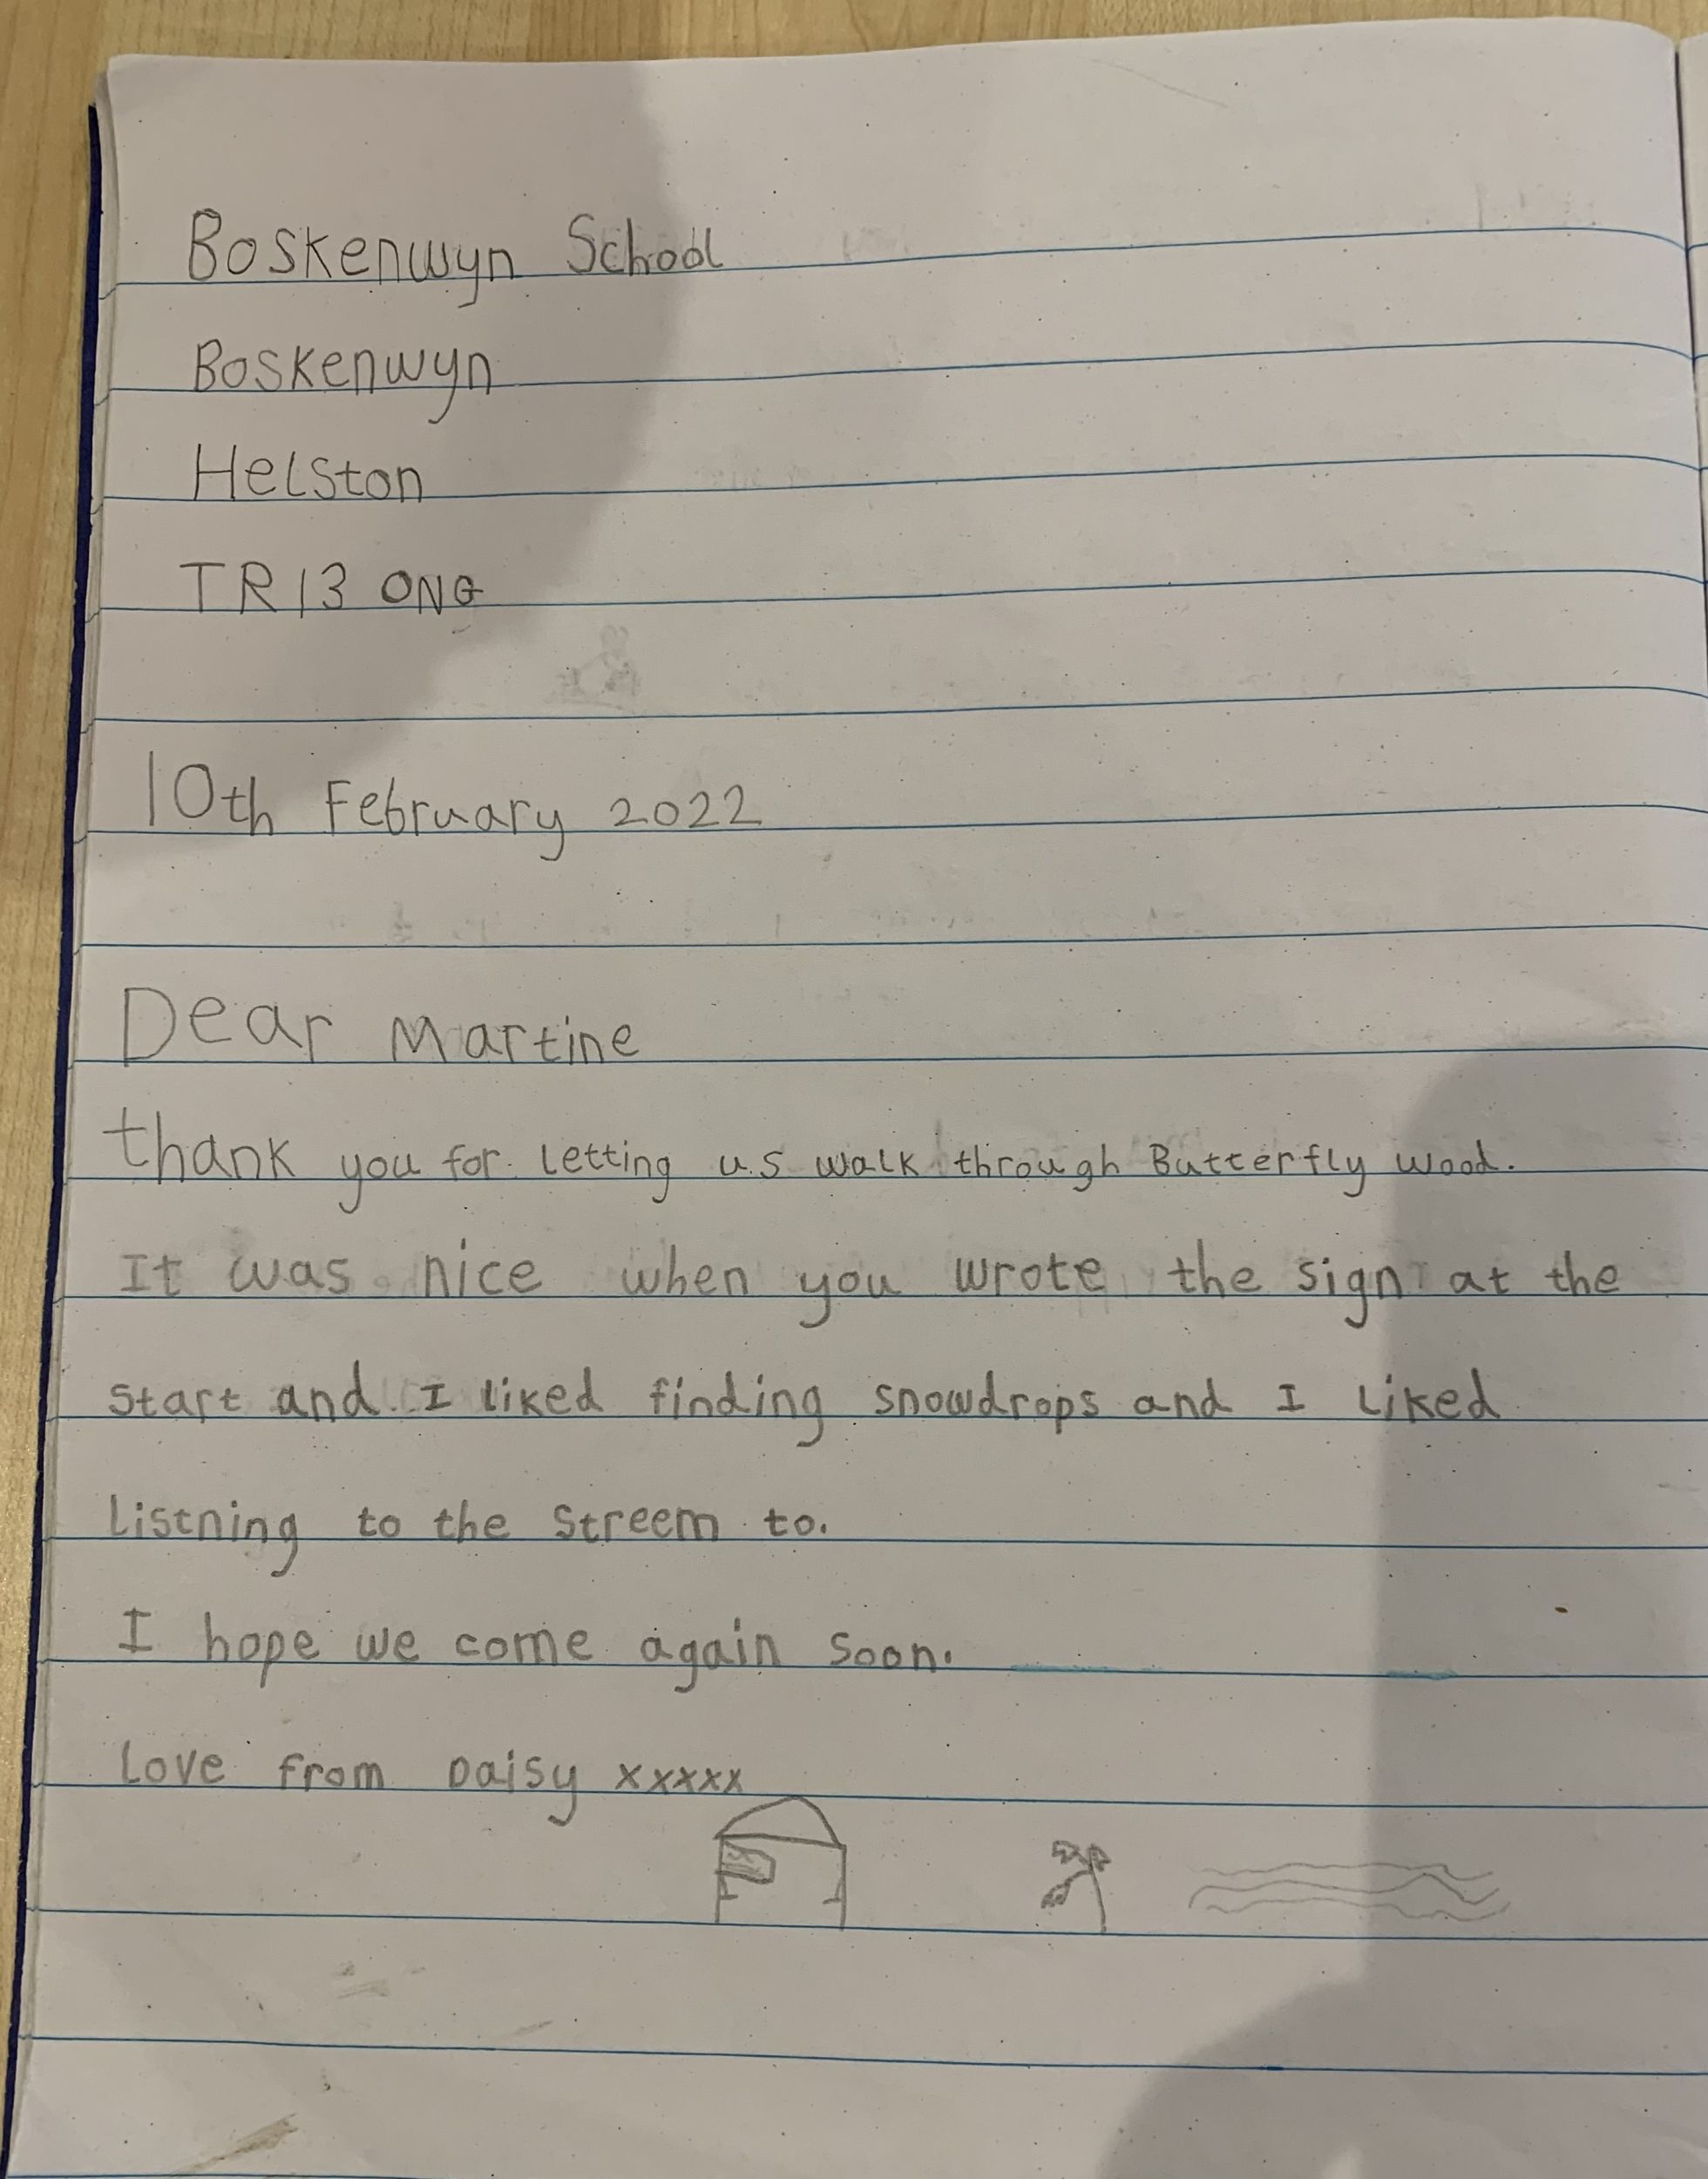 Boskenwyn School
Boskenwyn
Helston
TR13 0NG
10th February 2022
Dear Martine
thank you for letting us walk through Butterfly wood.
It was nice when you wrote the sign at the
start and I liked finding snowdrops and I liked
listning to the streem to.
I hope we come again soon.
Love from Daisy xxxxx